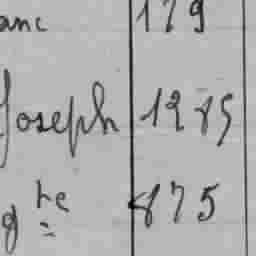 anc 179
Joseph 1285
gne 875